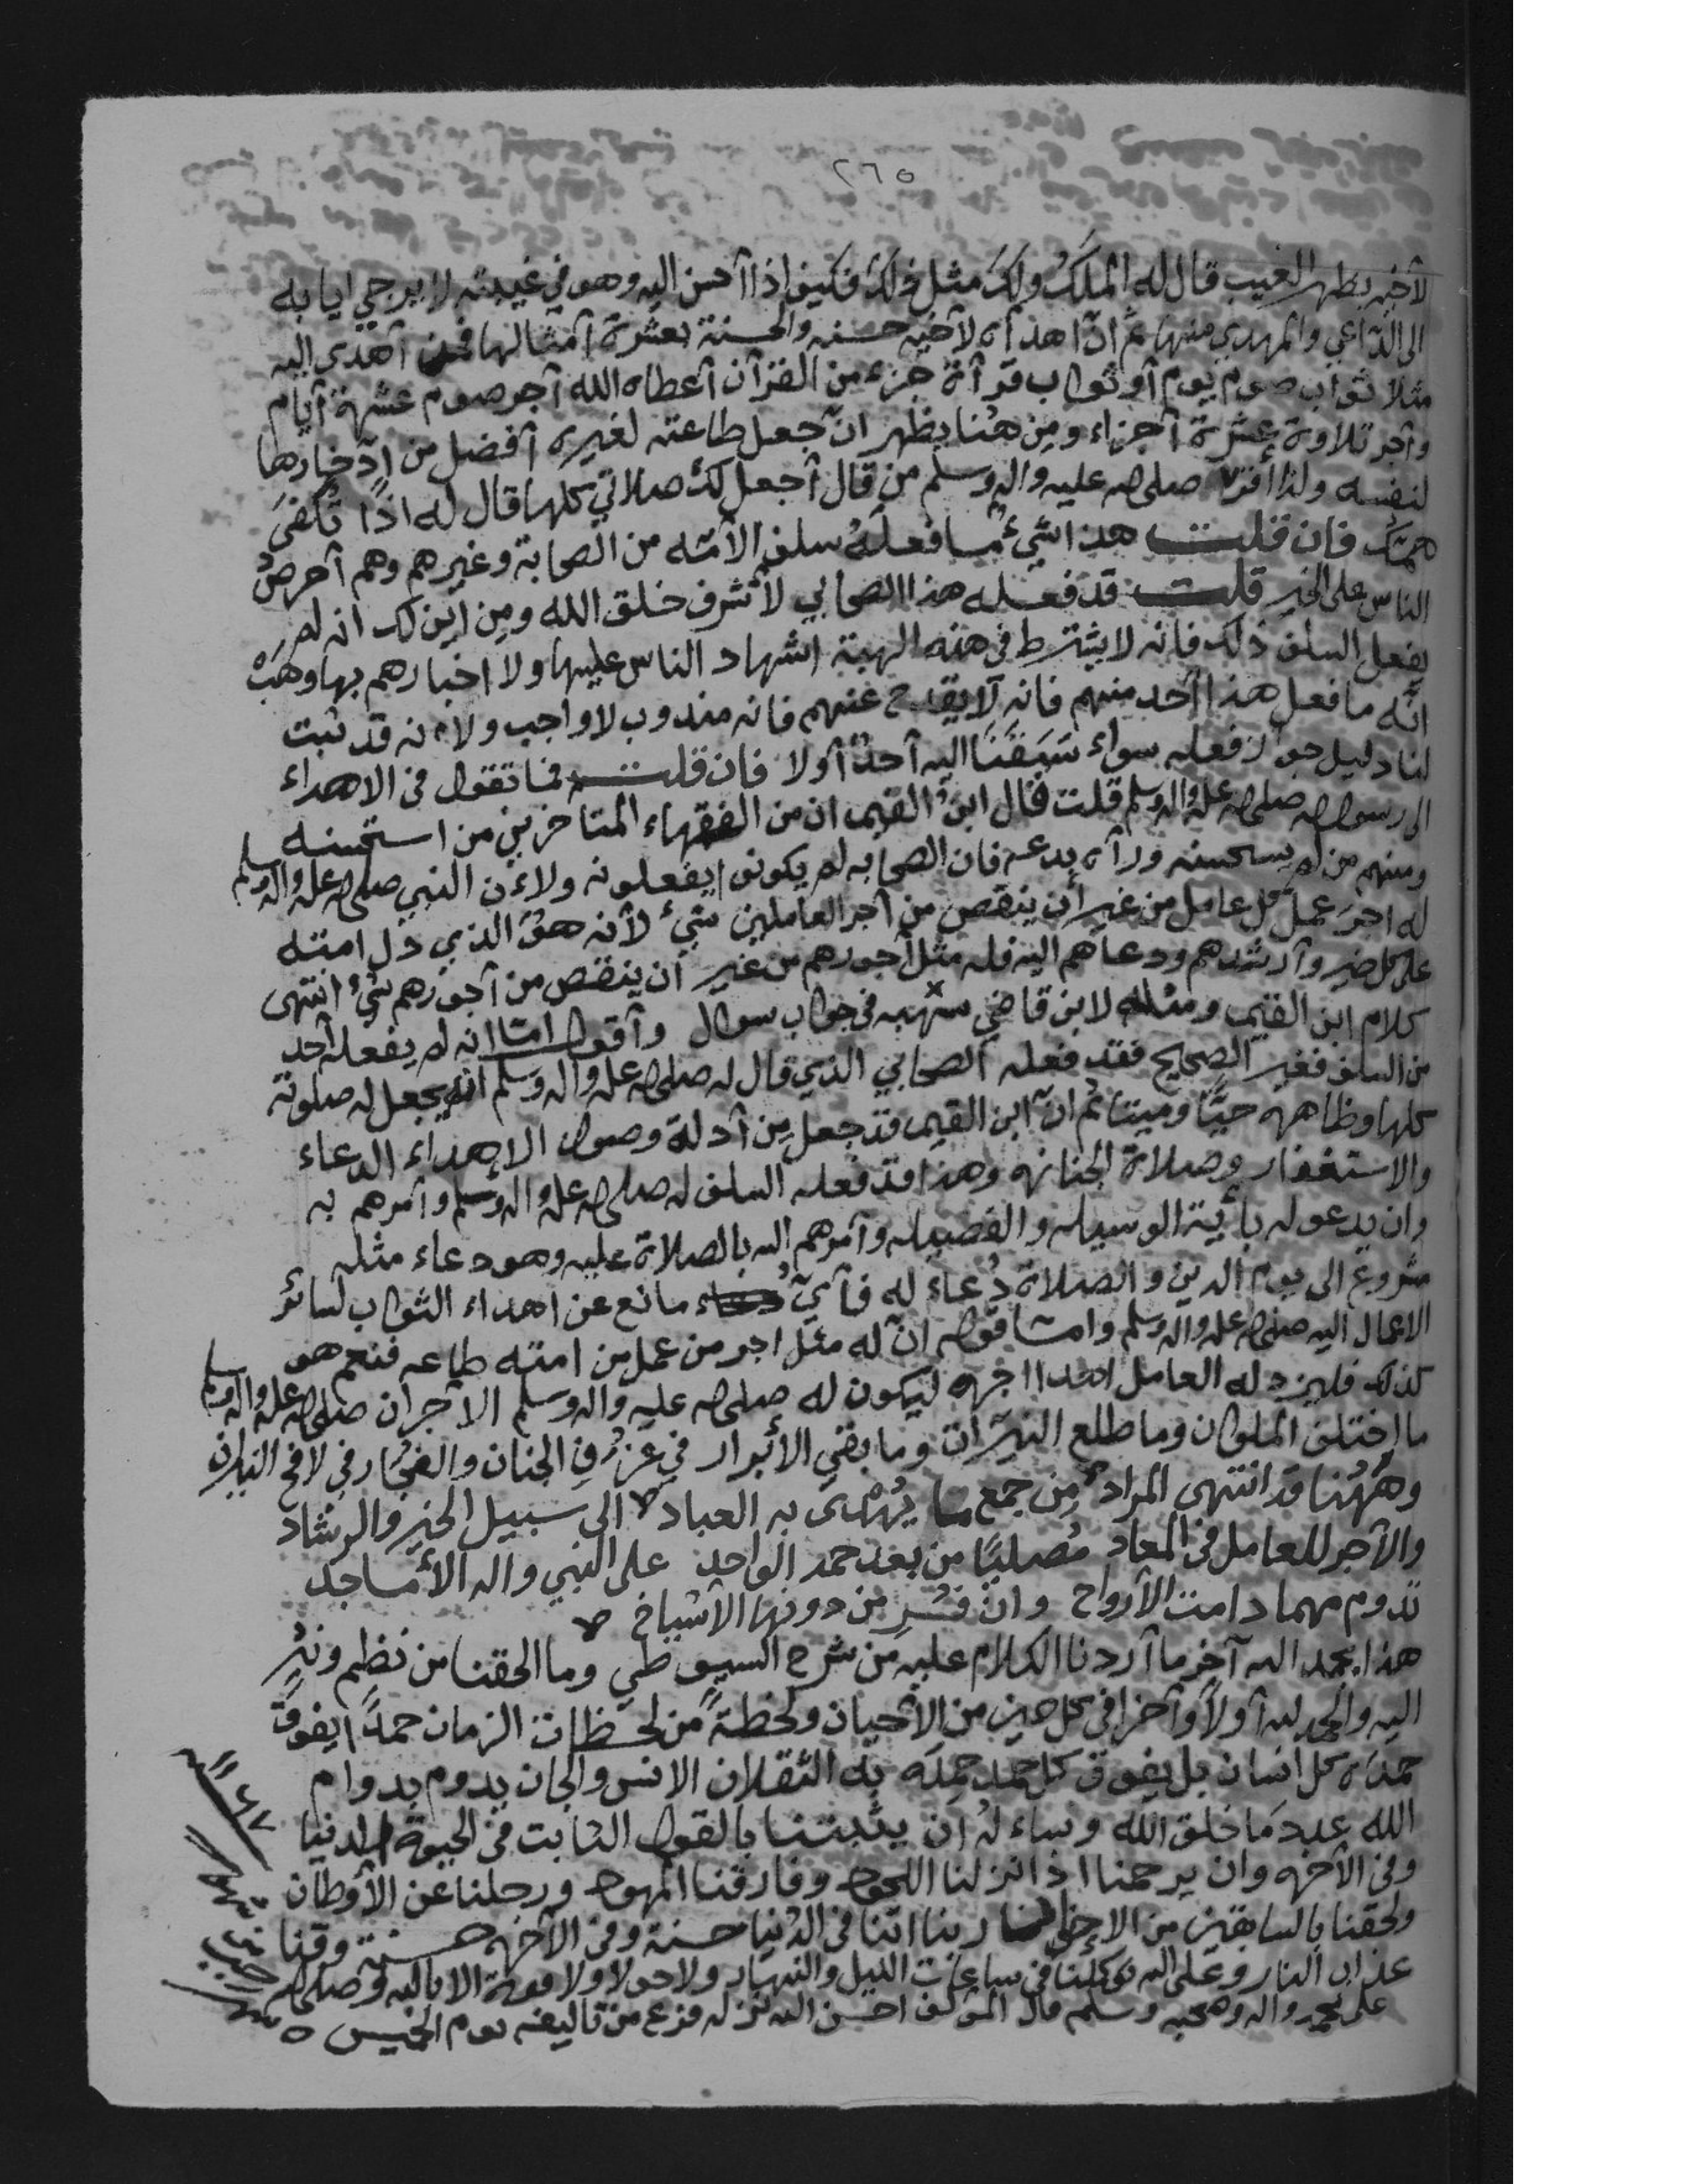 ٢٦٥
لأخيه بظهر الغيب قال له الملك ولك مثل ذلك فكيف إذا أحسن إليه وهو في غيبته لا يرجى إيابه
إلى الداعي والمهدي منهما ثم ان اهداه لأخيه حسنه والحسنة بعشرة أمثالها فمن أهدى إليه
مثلا ثواب صوم يوم أو ثواب قرآءة جزء من القرآن أعطاه الله أجر صوم عشرة أيام
وأجر تلاوة عشرة أجزاء ومن هنا يظهر ان جعل طاعته لغيره أفضل من ادخارها
لنفسه ولذا أقر صلى الله عليه واله وسلم من قال أجعل لك صلاتي كلها قال له اذًا تكفى
همك فان قلت هذا شيء ما فعله سلف الأمه من الصحابة وغيرهم وهم أحرص
الناس على الخير قلت قد فعله هذا الصحابي لأشرف خلق الله ومن اين لك انه لم
يفعل السلف ذلك فانه لا يشترط في هذه الهبة اشهاد الناس عليها ولا اخبارهم بها وهب
انه ما فعل هذا أحد منهم فانه لا يقدح عنهم فانه مندوب لا واجب ولانه قد ثبت
لنا دليل جواز فعله سواء سبقنا اليه أحد أولا فان قلت فما تقول في الاهداء
الى رسول الله صلى الله عليه واله وسلم قلت قال ابن القيم ان من الفقهاء المتاخرين من استحسنه
ومنهم من لم يستحسنه ورآه بدعه فان الصحابه لم يكونوا يفعلونه ولاءن النبي صلى الله عليه واله وسلم
له اجر عمل كل عامل من غير أن ينقص من أجر العاملين شيء لأنه هو الذي دل امته
على كل خير وأرشدهم ودعاهم اليه فله مثل أجورهم من غير أن ينقص من أجورهم شيء انتهى
كلام ابن القيم ومثله لابن قاضي شهبه في جواب سوال وأقول اما انه لم يفعله أحد
من السلف فغير الصحيح فقد فعله الصحابي الذي قال له صلى الله عليه واله وسلم انه يجعل له صلوته
كلها وظاهره حيًا وميتا ثم ان ابن القيم قد جعل من أدلة وصول الاهداء الدعاء
والاستغفار وصلاة الجنازه وهذا قد فعله السلف له صلى الله عليه واله وسلم وأمرهم به
وان يدعو له بأيتة الوسيله والفضيله وأمرهم الله بالصلاة عليه وهو دعاء مثله
مشروع الى يوم الدين والصلاة دعاء له فأي مانع عن اهداء الثواب لسائر
الاعمال اليه صلى الله عليه واله وسلم واما قوله ان له مثل اجر من عمل من امته طاعه فنعم هو
كذلك فليزد له العامل اهداء اجره ليكون له صلى الله عليه واله وسلم الأجران صلى الله عليه واله وسلم
ما اختلف الملوان وما طلع النيران وما بقي الأبرار في غرف الجنان والفجار في لافح النيران
وههنا قد انتهى المراد من جمع ما يهدى به العباد الى سبيل الخير والرشاد
والأجر للعامل في المعاد مصليًا من بعد حمد الواحد على النبي واله الأماجد
تدوم مهما دامت الأرواح وان من دونها الأشباح
هذا بحمد الله آخر ما أردنا الكلام عليه من شرح السيوطي وما الحقنا من نظم ونثر
اليه والحمد لله أولاً وآخرا في كل حين من الأحيان ولحظة من لحظات الزمان حمدًا يفوق
حمده كل انسان بل يفوق كل حمد حمده به الثقلان الانس والجان يدوم بدوام
الله عدد ما خلق الله ونساءله ان يثبتنا بالقول الثابت في الحيوة الدنيا
وفي الآخره وان يرحمنا اذا نزلنا اللحود وفارقنا المهود ورحلنا عن الأوطان
ولحقنا بالسابقين من الإخوان ربنا اتنا في الدنيا حسنة وفي الآخره حسنة وقنا
عذاب النار وعلى الله توكلنا في ساعات الليل والنهار ولا حول ولا قوة الا بالله وصلى الله
على محمد واله وصحبه وسلم قال المؤلف احسن الله نزله فرغ من تاليفه يوم الخميس